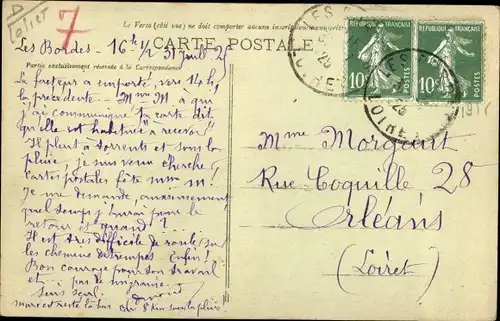 Loiret
7
Le Verso (côté vue) ne doit comporter aucune inscription manuscrite
CARTE POSTALE
Partie exclusivement réservée à la Correspondance
Les Bordes - 16h 1/2 31 juil.
Le facteur a emporté, vers 14h,
la précédente - Mme M à qui
j'ai communiqué ta carte dit
qu'elle est habituée à recevoir
Il pleut à torrents et sous la
pluie, je suis venu chercher
cartes postales
Je me demande, anxieusement
quel temps j'aurai pour le
retour et quand ?
Il est très difficile de rouler sur
les chemins détrempés. Enfin !
Bon courage pour ton travail
et... pas de migraine.
suis seul.
sous la pluie
REPUBLIQUE FRANÇAISE
10c POSTES
REPUBLIQUE FRANÇAISE
10c POSTES
LES
LOIRET
Mme Morgant
Rue Coquille 28
Orléans
(Loiret)